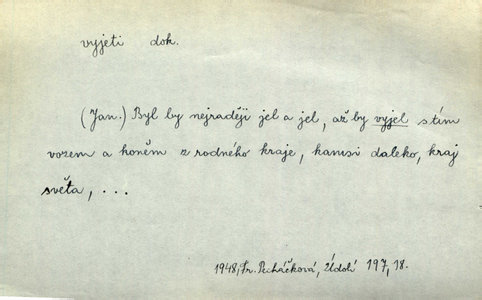 vyjeti dok.
(Jan.) Byl by nejraději jel a jel, až by vyjel s tím
vozem a koněm z rodného kraje, kamsi daleko, kraj
světa, ...
1948, Fr. Pecháčková, Údolí 197, 18.